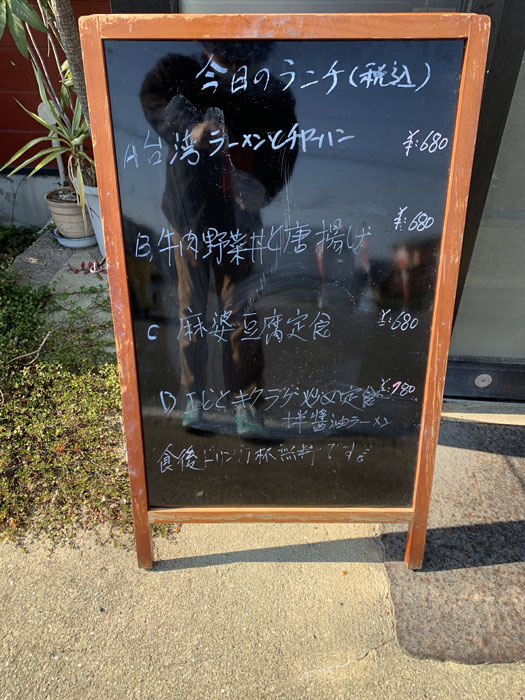 今日のランチ(税込)
A 台湾ラーメンとチャーハン ¥:680
B. 牛肉野菜丼と唐揚げ ¥:680
C 麻婆豆腐定食 ¥:680
D エビとキクラゲ炒め定食 ¥:780
+半醤油ラーメン
食後ドリンク1杯無料です。